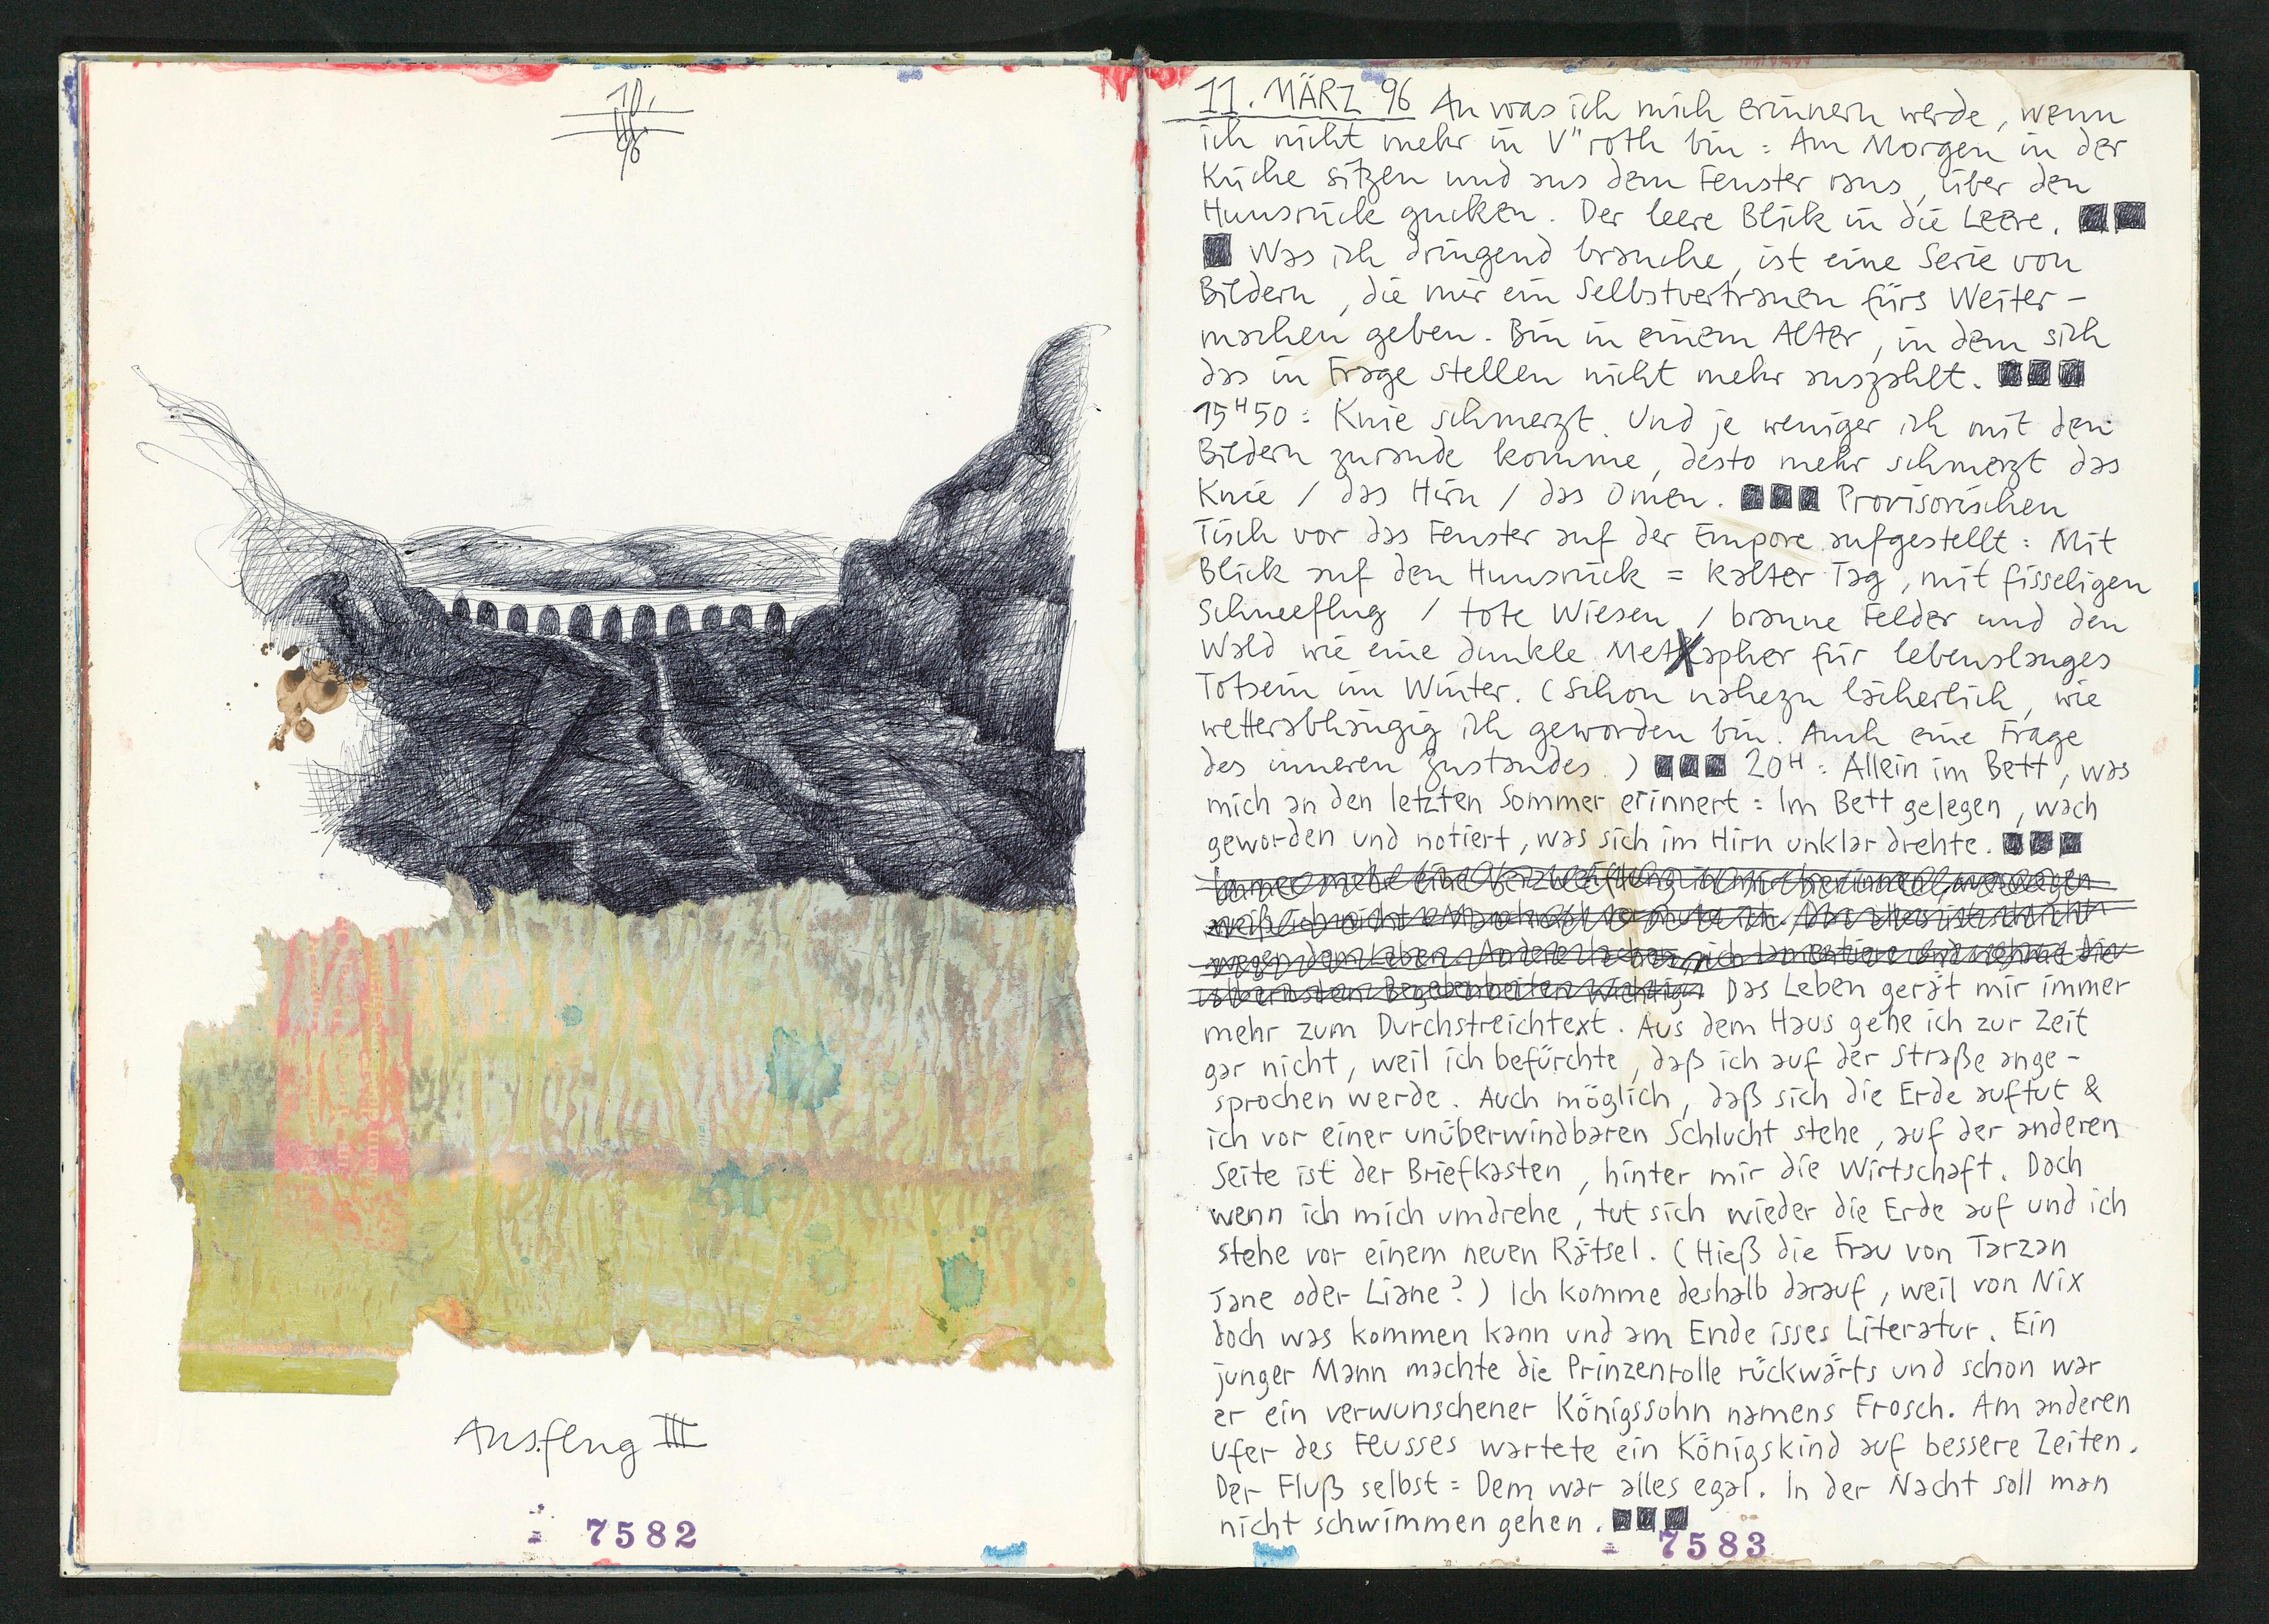 10.
III.
96
Ausflug III
7582
11. MÄRZ 96 An was ich mich erinnern werde, wenn
ich nicht mehr in V"roth bin: Am Morgen in der
Küche sitzen und aus dem Fenster raus, über den
Hunsrück gucken. Der leere Blick in die Leere.
Was ich dringend brauche, ist eine Serie von
Bildern, die mir ein Selbstvertrauen fürs Weiter-
machen geben. Bin in einem Alter, in dem sich
das in Frage stellen nicht mehr auszahlt.
15H50: Knie schmerzt. Und je weniger ich mit den
Bildern zurande komme, desto mehr schmerzt das
Knie / das Hirn / das Omen. Provisorischen
Tisch vor das Fenster auf der Empore aufgestellt: Mit
Blick auf den Hunsrück = Kalter Tag, mit fisseligen
Schneeflug / tote Wiesen / braune Felder und den
Wald wie eine dunkle Metapher für lebenslanges
Totsein im Winter. (Schon nahezu lächerlich, wie
wetterabhängig ich geworden bin. Auch eine Frage
des inneren Zustandes.) 20H: Allein im Bett, was
mich an den letzten Sommer erinnert: Im Bett gelegen, wach
geworden und notiert, was sich im Hirn unklar drehte.
Immer mehr eine Verzweiflung in mir
weiß ich nicht
wegen dem Leben. Andere lachen, ich lamentiere und nehme die
Begebenheiten wichtig. Das Leben gerät mir immer
mehr zum Durchstreichtext. Aus dem Haus gehe ich zur Zeit
gar nicht, weil ich befürchte, daß ich auf der Straße ange-
sprochen werde. Auch möglich, daß sich die Erde auftut &
ich vor einer unüberwindbaren Schlucht stehe, auf der anderen
Seite ist der Briefkasten, hinter mir die Wirtschaft. Doch
wenn ich mich umdrehe, tut sich wieder die Erde auf und ich
stehe vor einem neuen Rätsel. (Hieß die Frau von Tarzan
Jane oder Liane?) Ich komme deshalb darauf, weil von Nix
doch was kommen kann und am Ende isses Literatur. Ein
junger Mann machte die Prinzenrolle rückwärts und schon war
er ein verwunschener Königssohn namens Frosch. Am anderen
Ufer des Flusses wartete ein Königskind auf bessere Zeiten.
Der Fluß selbst = Dem war alles egal. In der Nacht soll man
nicht schwimmen gehen.
7583